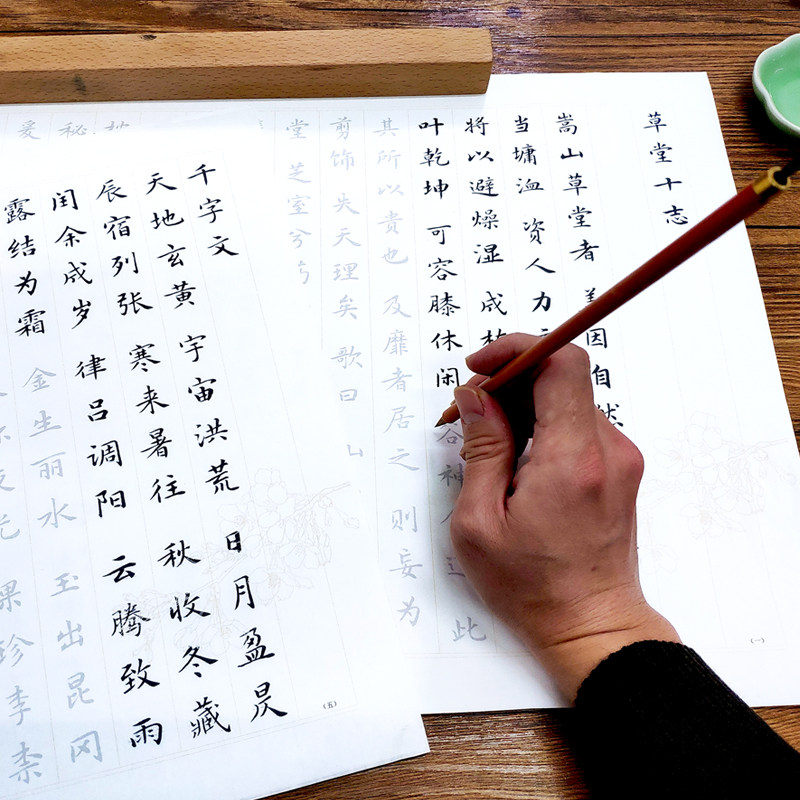 草堂十志
嵩山草堂者 因自然
当墉洫 资人力
将以避燥湿 成
叶乾坤 可容膝休闲 谷神 此
其所以贵也 及靡者居之 则妄为
剪饰 失天理矣 歌曰
堂 芝室兮
秘
爱
千字文
天地玄黄 宇宙洪荒 日月盈昃
辰宿列张 寒来暑往 秋收冬藏
闰余成岁 律吕调阳 云腾致雨
露结为霜 金生丽水 玉出昆冈
光 果珍李柰
(一)
(五)